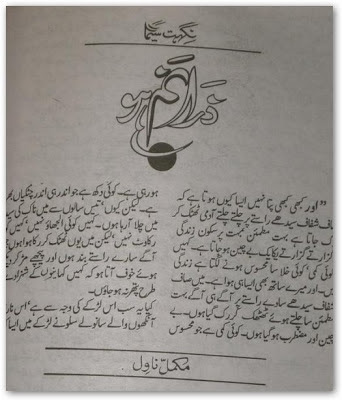 نگہت سیما
ذرا نم ہو
"اور کبھی کبھی پتا نہیں ایسا کیوں ہوتا ہے کہ
صاف شفاف سیدھے راستے پر چلتے چلتے آدمی ٹھٹک کر
رک جاتا ہے بہت مطمئن بہت پر سکون زندگی
گزارتے گزارتے یکایک بے چین ہو جاتا ہے۔ کہیں
کوئی کمی کوئی خلا سا محسوس ہونے لگتا ہے زندگی
میں۔ اور میرے ساتھ بھی ایسا ہی ہوا ہے۔ میں صاف
شفاف سیدھے سادے راستے پر آگے ہی آگے بہت
مطمئن سا چلتے ہوئے ٹھٹک کر رک گیا ہوں۔ بے
چین اور مضطرب ہو گیا ہوں۔ کوئی کمی ہے جو محسوس
ہو رہی ہے۔ کوئی دکھ ہے جو اندر ہی اندر چٹکیاں بھر
ہے۔ لیکن کیوں؟ تیس سالوں سے میں ناک کی
میں چلا آ رہا ہوں۔ کہیں کوئی الجھاؤ نہیں، کہیں
رکاوٹ نہیں لیکن میں یوں ٹھٹک کر رکا ہوا ہوں
آگے سارے راستے بند ہوں اور پیچھے مڑ کر
ہوئے خوف آتا ہو کہ کہیں کہانیوں کے شہزادے
طرح پتھر نہ ہو جاؤں۔
کیا یہ سب اس لڑکے کی وجہ سے ہے، اس
آنکھوں والے سانولے سلونے لڑکے میں ایسا
مکمل ناول